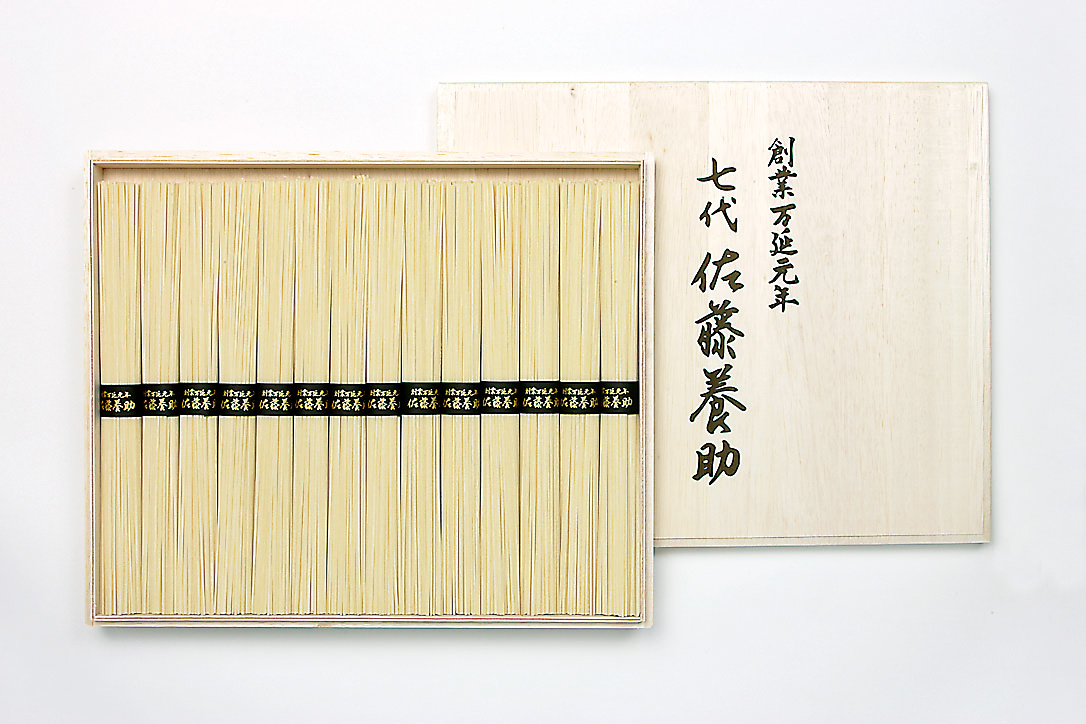 創業万延元年
七代 佐藤養助
創業万延元年
佐藤養助
創業万延元年
佐藤養助
創業万延元年
佐藤養助
創業万延元年
佐藤養助
創業万延元年
佐藤養助
創業万延元年
佐藤養助
創業万延元年
佐藤養助
創業万延元年
佐藤養助
創業万延元年
佐藤養助
創業万延元年
佐藤養助
創業万延元年
佐藤養助
創業万延元年
佐藤養助
創業万延元年
佐藤養助
創業万延元年
佐藤養助